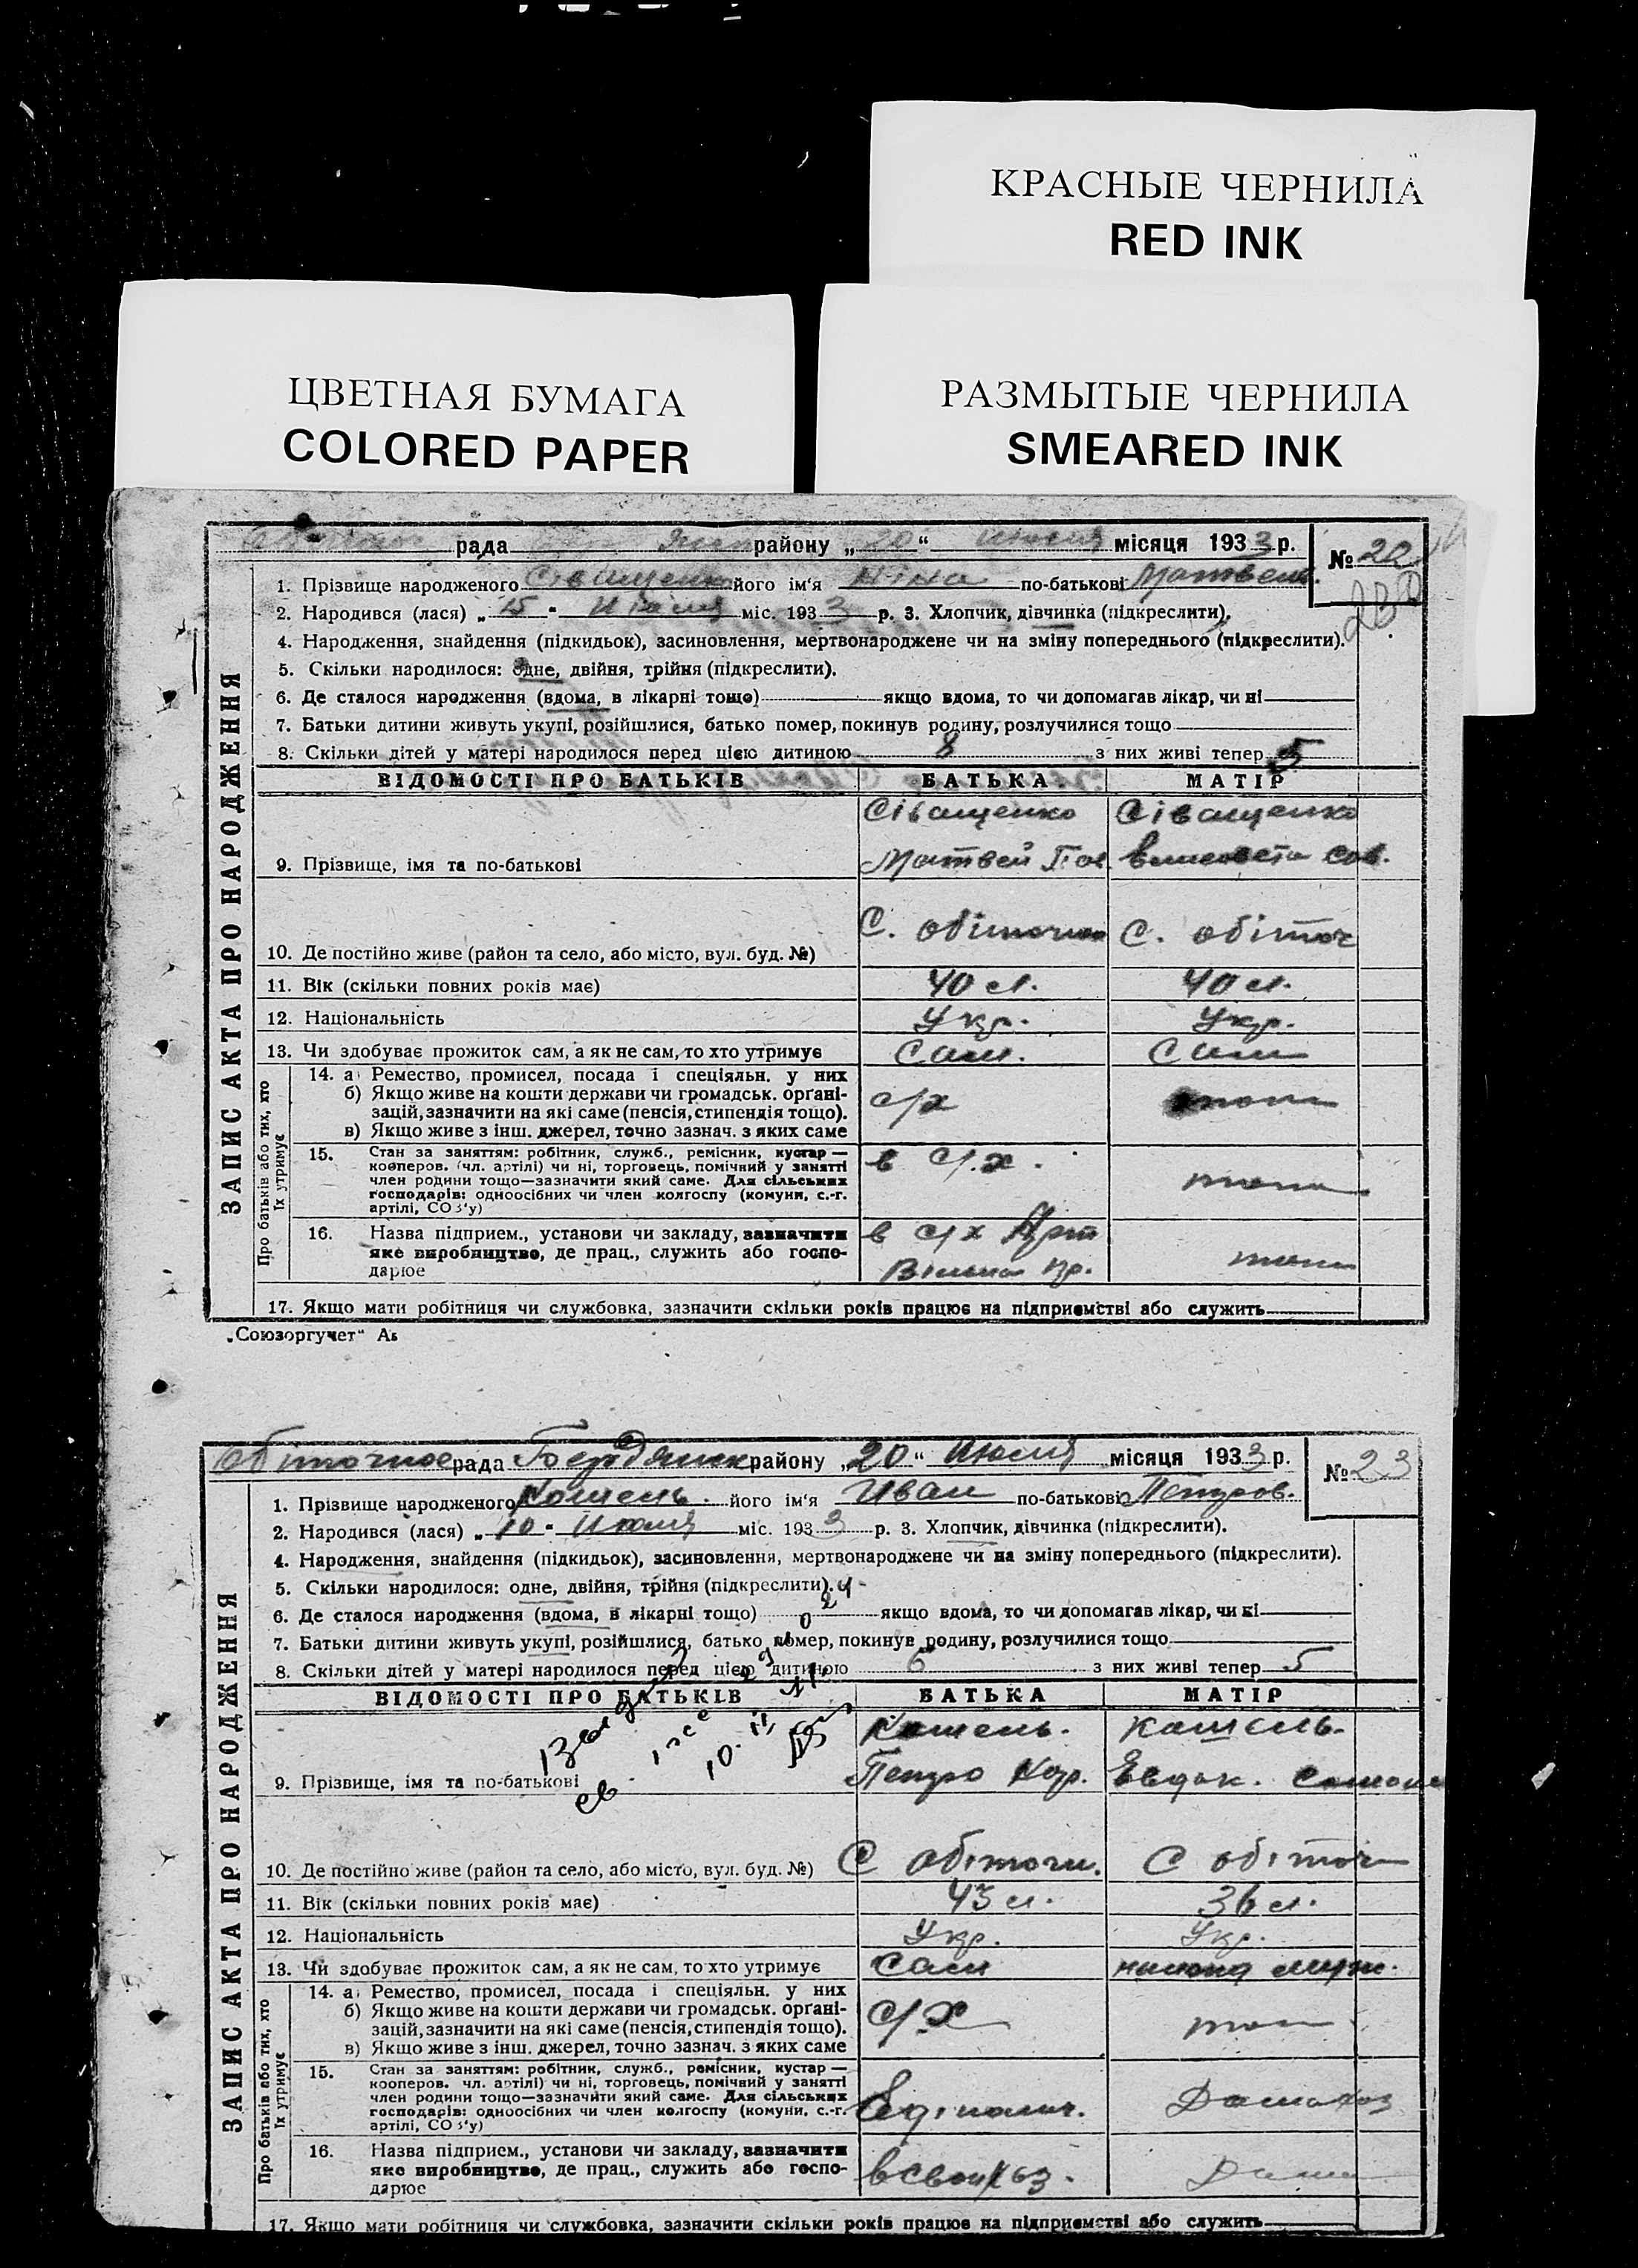 КРАСНЫЕ ЧЕРНИЛА
RED INK
ЦВЕТНАЯ БУМАГА
COLORED PAPER
РАЗМЫТЫЕ ЧЕРНИЛА
SMEARED INK
рада району „20“ Июля місяця 1933 р. № 22
1. Прізвище народженого Сіващенко його ім'я Ніна по-батькові Матвеев.
2. Народився (лася) „15" Июля міс. 1933 р. 3. Хлопчик, дівчинка (підкреслити).
4. Народження, знайдення (підкидьок), засиновлення, мертвонароджене чи на зміну попереднього (підкреслити).
5. Скільки народилося: одне, двійня, трійня (підкреслити).
6. Де сталося народження (вдома, в лікарні тощо) якщо вдома, то чи допомагав лікар, чи ні
7. Батьки дитини живуть укупі, розійшлися, батько помер, покинув родину, розлучилися тощо
8. Скільки дітей у матері народилося перед цією дитиною 8 з них живі тепер 5
ВІДОМОСТІ ПРО БАТЬКІВ БАТЬКА МАТІР
Сіващенко Сіващенко
9. Прізвище, імя та по-батькові Матвей Пав. Елисовета Сав.
10. Де постійно живе (район та село, або місто, вул. буд. №) С. обіточное С. обіточ
11. Вік (скільки повних років має) 40 л. 40 л.
12. Національність Укр. Укр.
13. Чи здобуває прожиток сам, а як не сам, то хто утримує Сам. Сам
14. а) Ремество, промисел, посада і спеціяльн. у них
б) Якщо живе на кошти держави чи громадськ. орґані- с/х
зацій, зазначити на які саме (пенсія, стипендія тощо).
в) Якщо живе з інш. джерел, точно зазнач. з яких саме
15. Стан за заняттям: робітник, служб., ремісник, кустар —
кооперов. (чл. артілі) чи ні, торговець, помічний у занятті в с/х.
член родини тощо—зазначити який саме. Для сільських
господарів: одноосібних чи член колгоспу (комуни, с.-г.
артілі, СОЗ'у)
16. Назва підприєм., установи чи закладу, зазначити в с/х Арт
яке виробництво, де прац., служить або госпо- Вільна пр.
дарює
17. Якщо мати робітниця чи службовка, зазначити скільки років працює на підприємстві або служить
Про батьків або тих, хто їх утримує
ЗАПИС АКТА ПРО НАРОДЖЕННЯ
„Союзоргучет“
Обіточное рада Бердянск району „20“ Июля місяця 1933 р. № 23
1. Прізвище народженого Кошель. його ім'я Иван по-батькові Петров.
2. Народився (лася) „10" Июля міс. 1933 р. 3. Хлопчик, дівчинка (підкреслити).
4. Народження, знайдення (підкидьок), засиновлення, мертвонароджене чи на зміну попереднього (підкреслити).
5. Скільки народилося: одне, двійня, трійня (підкреслити).
6. Де сталося народження (вдома, в лікарні тощо) якщо вдома, то чи допомагав лікар, чи ні
7. Батьки дитини живуть укупі, розійшлися, батько помер, покинув родину, розлучилися тощо
8. Скільки дітей у матері народилося перед цією дитиною 6 з них живі тепер 5
ВІДОМОСТІ ПРО БАТЬКІВ БАТЬКА МАТІР
Кошель. Кошель.
9. Прізвище, імя та по-батькові Петро Евдок.
10. Де постійно живе (район та село, або місто, вул. буд. №) С обіточн. С обіточ
11. Вік (скільки повних років має) 43 л. 36 л.
12. Національність Укр. Укр.
13. Чи здобуває прожиток сам, а як не сам, то хто утримує Сам муж.
14. а) Ремество, промисел, посада і спеціяльн. у них
б) Якщо живе на кошти держави чи громадськ. орґані- с/х
зацій, зазначити на які саме (пенсія, стипендія тощо).
в) Якщо живе з інш. джерел, точно зазнач. з яких саме
15. Стан за заняттям: робітник, служб., ремісник, кустар —
кооперов. чл. артілі) чи ні, торговець, помічний у занятті
член родини тощо—зазначити який саме. Для сільських Домахоз
господарів: одноосібних чи член колгоспу (комуни, с.-г.
артілі, СОЗ'у)
16. Назва підприєм., установи чи закладу, зазначити
яке виробництво, де прац., служить або госпо- в своим хоз.
дарює
17. Якщо мати робітниця чи службовка, зазначити скільки років працює на підприємстві або служить
Про батьків або тих, хто їх утримує
ЗАПИС АКТА ПРО НАРОДЖЕННЯ